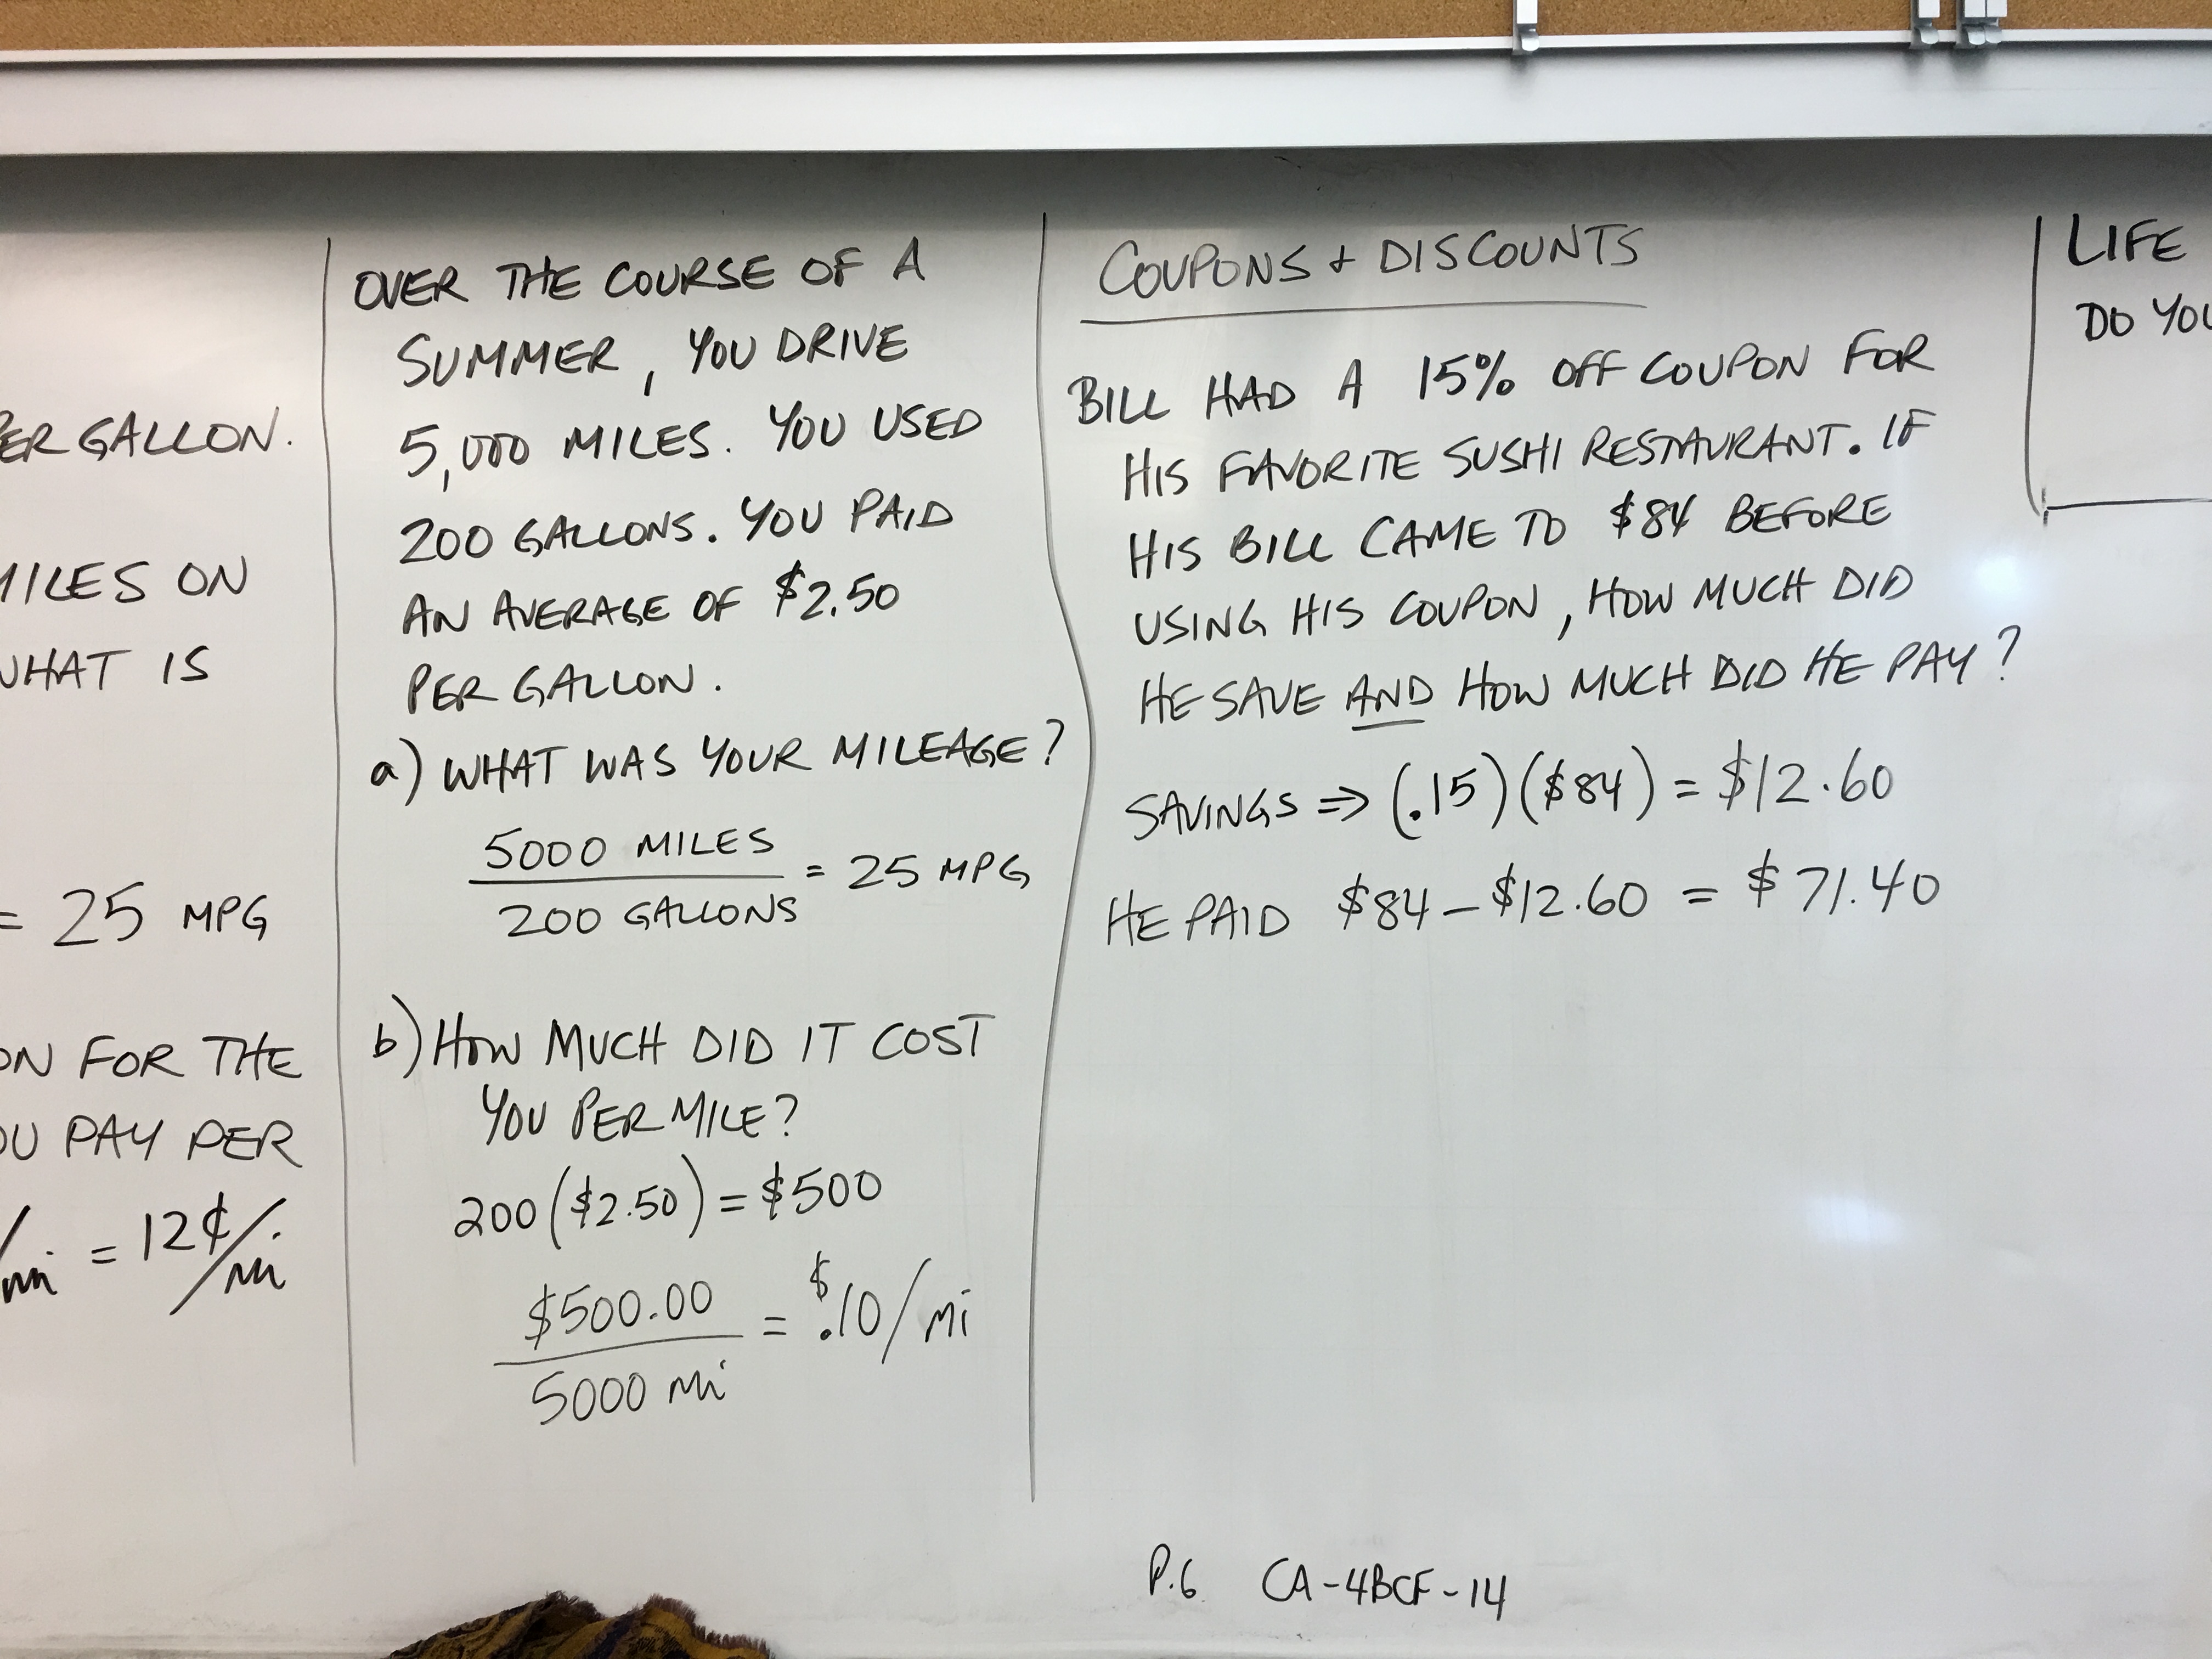 PER GALLON.
MILES ON
WHAT IS
= 25 MPG
ON FOR THE
OU PAY PER
/mi = 12¢/mi
OVER THE COURSE OF A
SUMMER, YOU DRIVE
5,000 MILES. YOU USED
200 GALLONS. YOU PAID
AN AVERAGE OF $2.50
PER GALLON.
a) WHAT WAS YOUR MILEAGE?
5000 MILES
200 GALLONS = 25 MPG
b) HOW MUCH DID IT COST
YOU PER MILE?
200($2.50) = $500
$500.00
5000 mi = $.10/mi
COUPONS + DISCOUNTS
BILL HAD A 15% OFF COUPON FOR
HIS FAVORITE SUSHI RESTAURANT. IF
HIS BILL CAME TO $84 BEFORE
USING HIS COUPON, HOW MUCH DID
HE SAVE AND HOW MUCH DID HE PAY?
SAVINGS ⇒ (.15)($84) = $12.60
HE PAID $84 - $12.60 = $71.40
P.6 CA-4BCF-14
LIFE
DO YOU